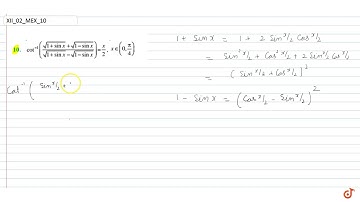 XII_02_MEX_10
10. cot⁻¹((√1+sin x + √1−sin x)/(√1+sin x − √1−sin x)) = x/2, x ∈ (0, π/4)
Cot⁻¹ ( Sin x/2 +
1 + Sin x = 1 + 2 Sin x/2 Cos x/2
= Sin² x/2 + Cos² x/2 + 2 Sin x/2 Cos x/2
= (Sin x/2 + Cos x/2)²
1 − Sin x = (Cos x/2 − Sin x/2)²